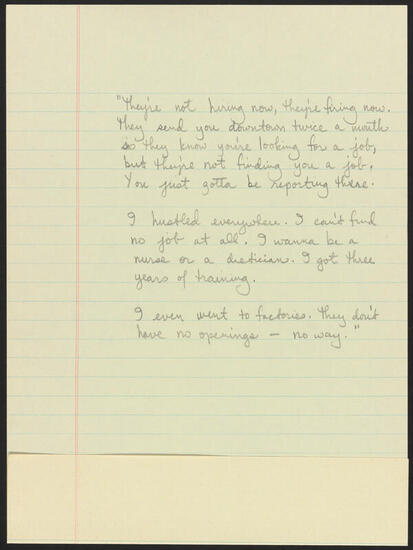 "They're not hiring now, they're firing now.
They send you downtown twice a month
so they know you're looking for a job,
but they're not finding you a job.
You just gotta be reporting there.
I hustled everywhere. I can't find
no job at all. I wanna be a
nurse or a dietician. I got three
years of training.
I even went to factories. They don't
have no openings — no way."